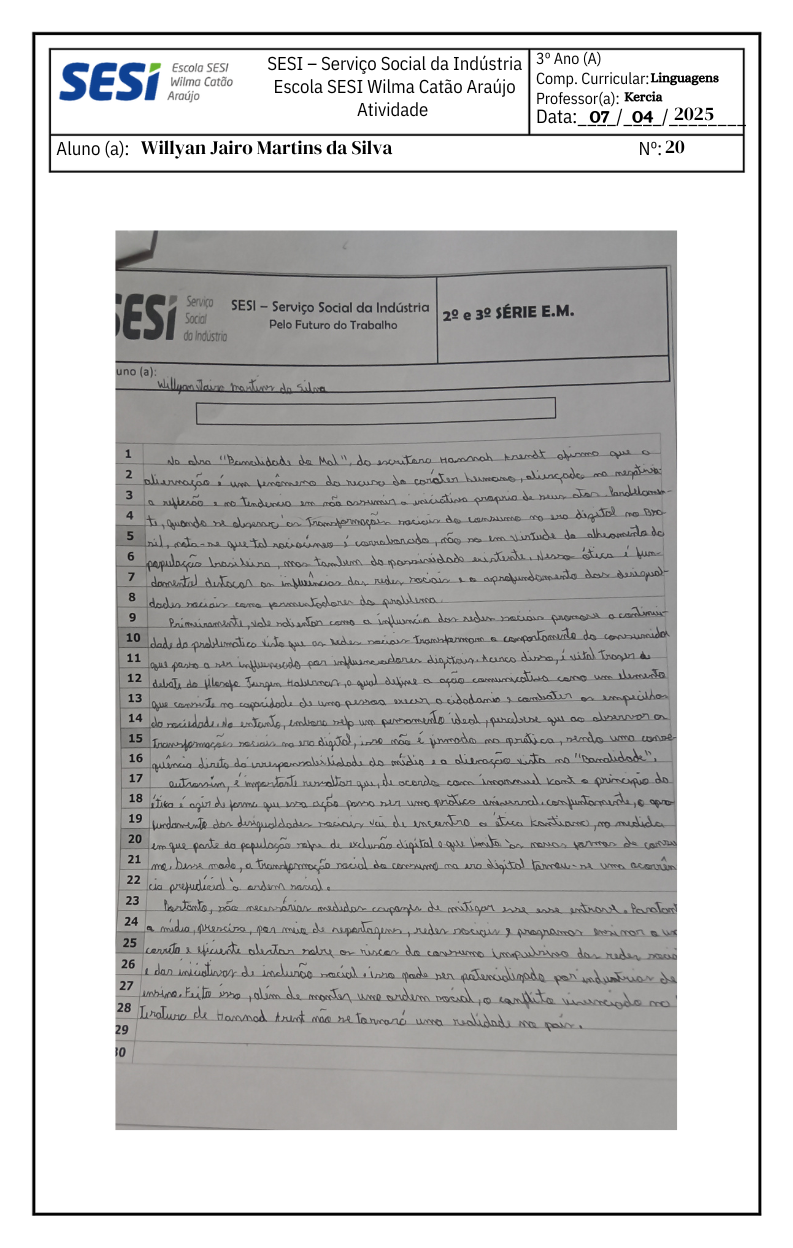 SESI
Escola SESI
Wilma Catão
Araújo
SESI – Serviço Social da Indústria
Escola SESI Wilma Catão Araújo
Atividade
3º Ano (A)
Comp. Curricular: Linguagens
Professor(a): Kercia
Data: 07 / 04 / 2025
Aluno (a): Willyan Jairo Martins da Silva
Nº: 20
SESI
Serviço
Social
da Indústria
SESI – Serviço Social da Indústria
Pelo Futuro do Trabalho
2º e 3º SÉRIE E.M.
uno (a):
Willyan Jairo Martins da Silva
1 Na obra "Banalidade do Mal", da escritora Hannah Arendt afirma que a
2 alienação é um fenômeno da recusa do caráter humano, alicerçado na negativa
3 a reflexão e na tendencia em não assumir a iniciativa propria de seus atos.
4 quando se observa as transformações sociais do consumo na era digital no Bra-
5 sil, nota-se que tal raciocíneo é corroborado, não so em virtude do alheamento da
6 população brasileira, mas tambem da passividade existente. Nessa ótica é fun-
7 damental destacar as influências das redes sociais e o aprofundamento das desigual-
8 dades sociais como fomentadores do problema.
9 Primeiramente, vale salientar como a influencia das redes sociais promove a continui-
10 dade da problematica visto que as redes sociais transformam o comportamento do consumidor
11 que passa a ser influenciado por influenciadores digitais. Acerca disso, é vital trazer o
12 debate do filosofo Jurgen Habermas, o qual define a ação comunicativa como um elemento
13 que consiste na capacidade de uma pessoa exercer a cidadania e combater os empecilhos
14 da sociedade. No entanto, embora seja um pensamento ideal, percebe-se que ao observar as
15 transformações sociais na era digital, isso não é firmado na prática, sendo uma conse-
16 quência direta da irresponsabilidade da mídia e a alienação vista na "Banalidade".
17 outrossim, é importante ressaltar que, de acordo com imannuel kant o principio da
18 ética é agir de forma que essa ação possa ser uma pratica universal. conjuntamente, o apro-
19 fundamento das desigualdades sociais vai de encontro a ética kantiana, na medida
20 em que parte da população sofre de exclusão digital o que limita as novas formas de consu
21 mo. Desse modo, a transformação social do consumo na era digital tornou-se uma ocorrên
22 cia prejudicial à ordem social.
23 Portanto, são necessárias medidas capazes de mitigar esse esse entrave.
24 a mídia, precisa, por meio de reportagens, redes sociais e programas ensinar o us
25 correto e eficiente alertar sobre os riscos do consumo impulsivo das redes socia
26 e das iniciativas de inclusão social. isso pode ser potencializado por industrias de
27 ensino. Feito isso, além de manter uma ordem social, o conflito vivenciado na
28 teratura de Hannad Arent não se tornará uma realidade no país.
29
30